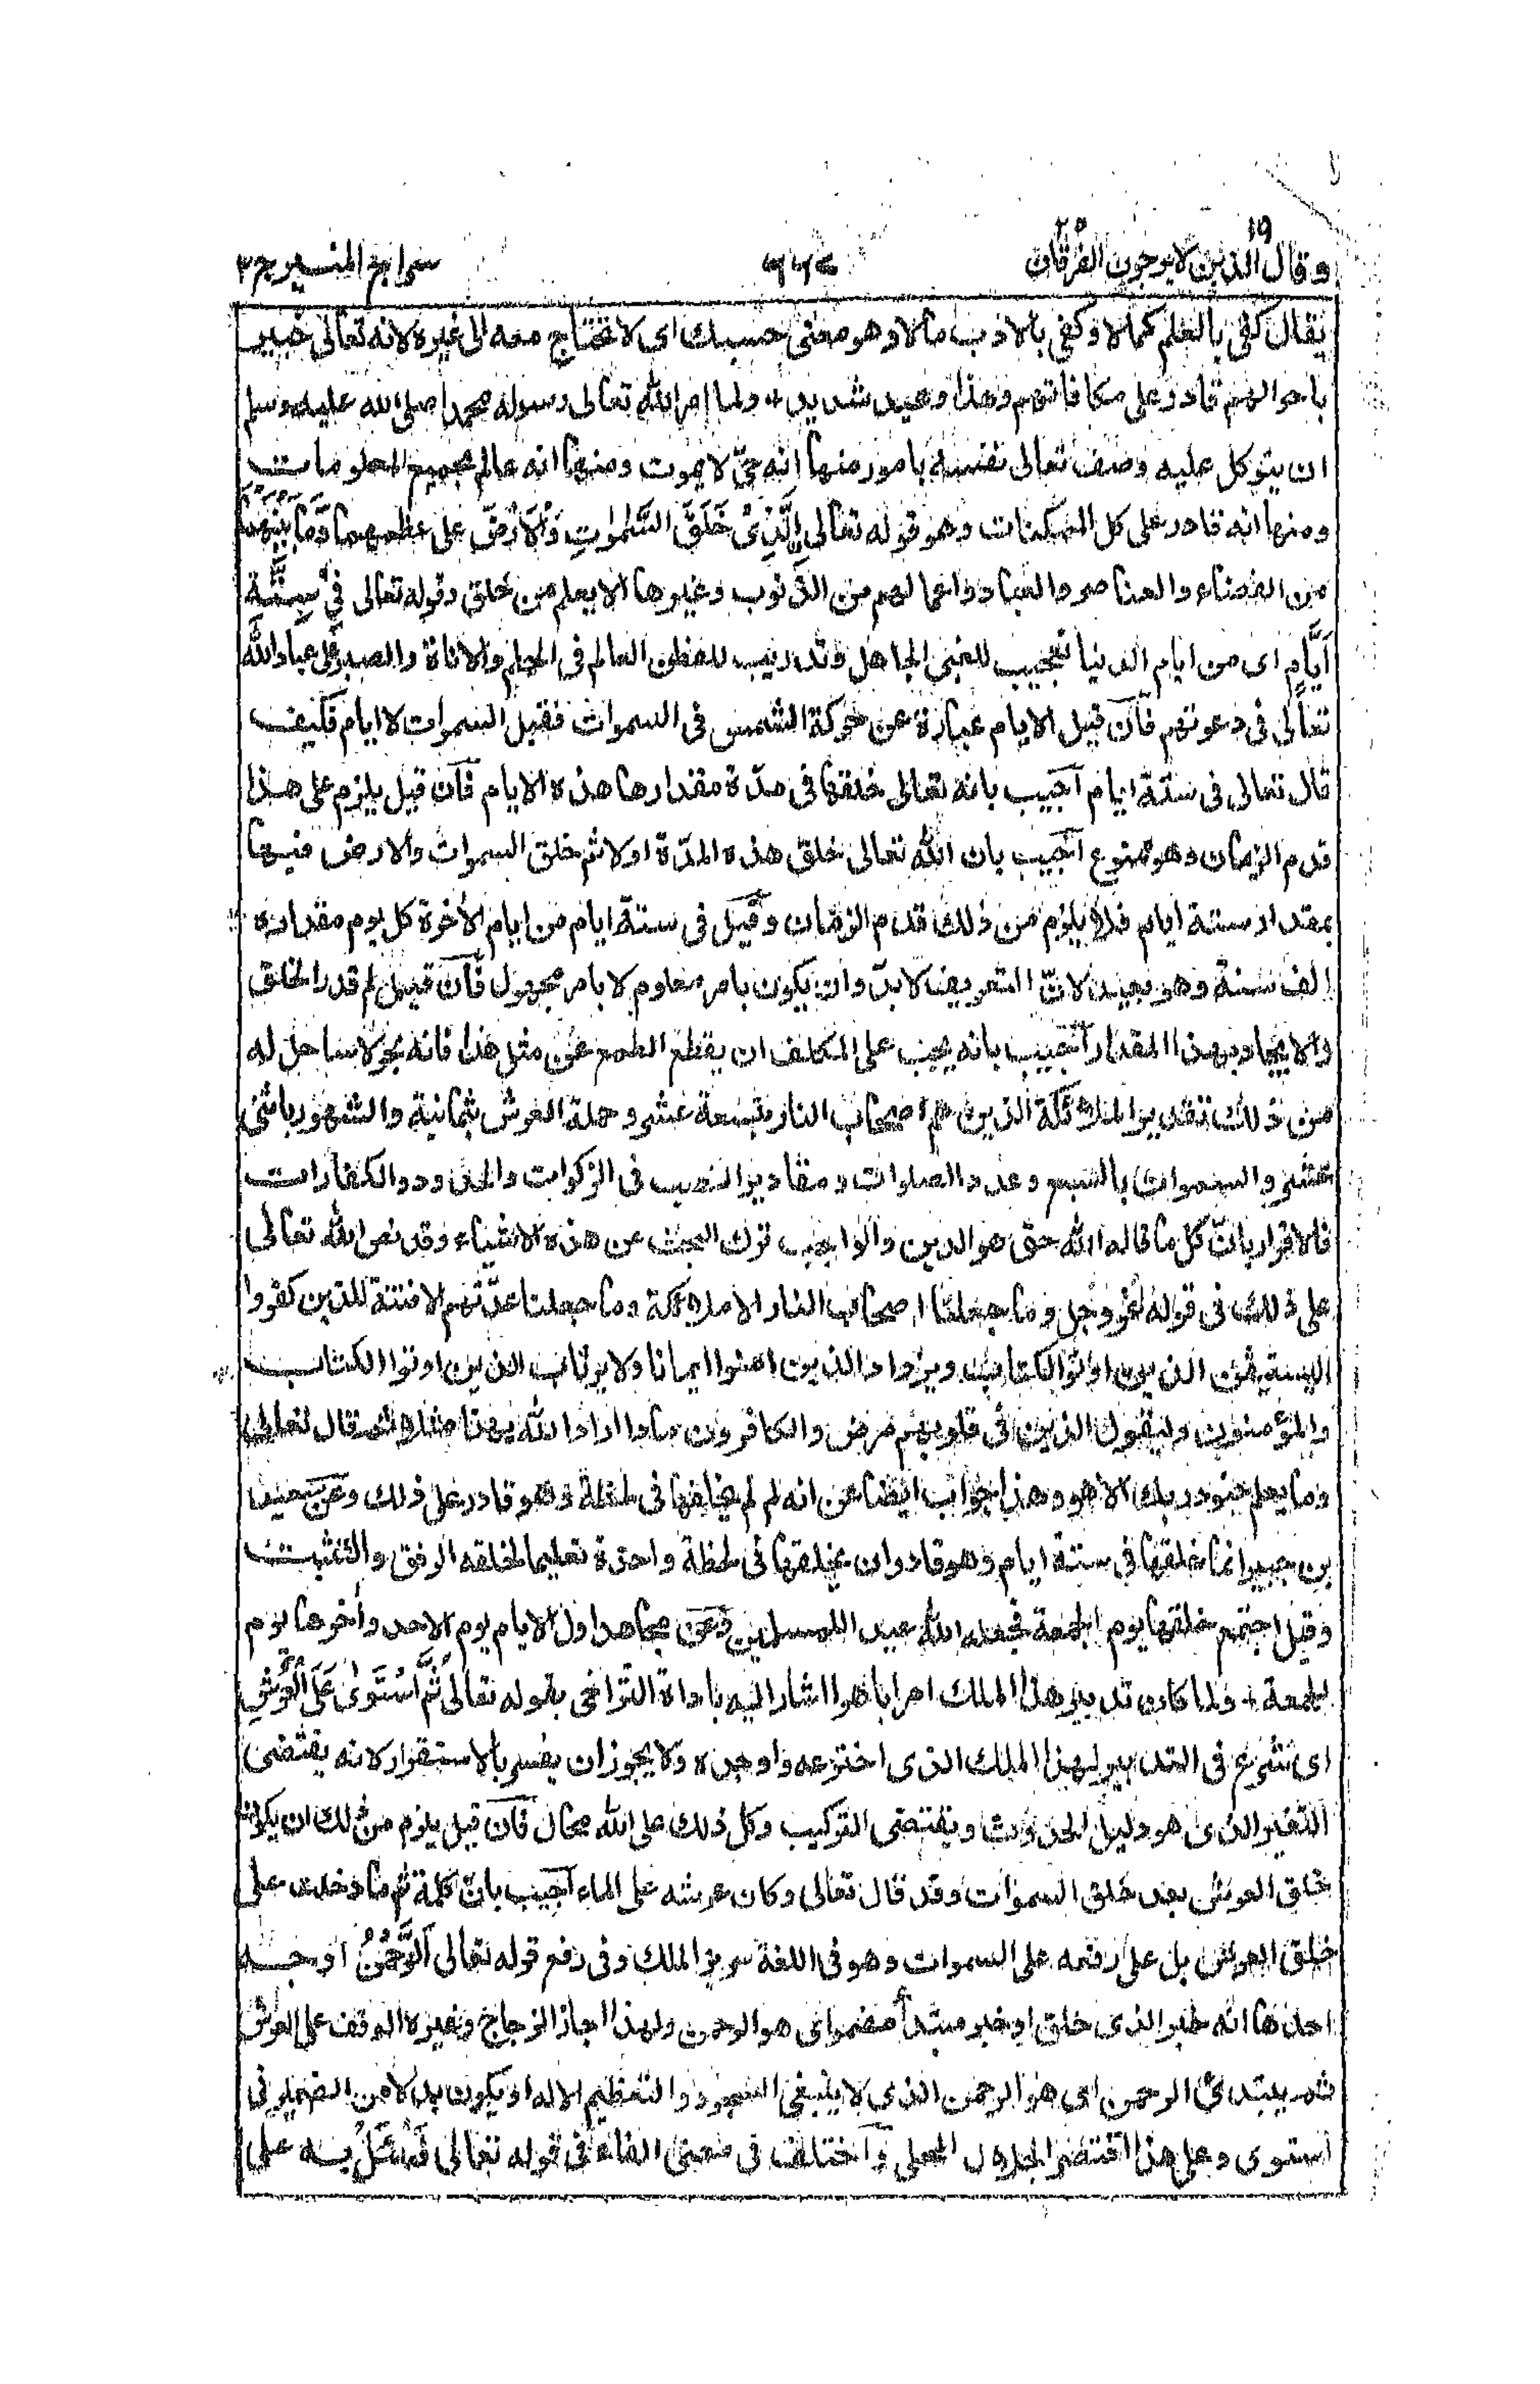 وقال الذين ١٩ لا يرجون الفرقان ٢٥
سراج المنير ج ٣
يقال كفى بالعلم كمالا وكفى بالادب مالا وهو معنى حسبك اى لا تحتاج معه الى غيره لانه تعالى خبير
باحوالهم قادر على مكافاتهم وهذا وعيد شديد + ولما امر الله تعالى رسوله محمدا صلى الله عليه وسلم
ان يتوكل عليه وصف تعالى نفسه بامور منها انه حىّ لا يموت ومنها انه عالم بجميع المعلومات
ومنها انه قادر على كل الممكنات وهو قوله تعالى اِلَّذِىْ خَلَقَ السَّمٰوٰتِ وَالْاَرْضَ على عظمهما وَمَا بَيْنَهُمَا
من الفضاء والعناصر والعباد واعمالهم من الذنوب وغيرها الا يعلم من خلق وقوله تعالى فِىْ سِتَّةِ
اَيَّامٍ اى من ايام الدنيا تعجيب للغبى الجاهل وتدريب للفطن العالم فى الحلم والاناة والصبر على عباد الله
تعالى فى دعوتهم فآن قيل الايام عبارة عن حركة الشمس فى السموات فقبل السموات لا ايام فكيف
قال تعالى فى ستة ايام آجيب بانه تعالى خلقها فى مدّة مقدارها هذه الايام فآن قيل يلزم على هذا
قدم الزمان وهو ممنوع آجيب بان الله تعالى خلق هذه المدّة اولا ثم خلق السموات والارض فيها
بمقدار ستة ايام فلا يلزم من ذلك قدم الزمان وقيل فى ستة ايام من ايام الأخرة كل يوم مقداره
الف سنة وهو بعيد لانّ التعريف لا بدّ وان يكون بامر معلوم لا بامر مجهول فآن قيل لم قدر الخلق
والايجاد بهذا المقدار آجيب بانه يجب على المكلف ان يقطع الطمع عن مثل هذا فانه بحر لا ساحل له
من ذلك تقدير الملائكة الذين هم اصحاب النار بتسعة عشر وحملة العرش بثمانية والشهور باثنى
عشر والسموات بالسبع وعدد الصلوات ومقادير النصب فى الزكوات والحدود والكفارات
فالاقرار بانّ كل ما قاله الله حق هو الدين والواجب ترك البحث عن هذه الاشياء وقد نص الله تعالى
على ذلك فى قوله عز وجل وما جعلنا اصحاب النار الا ملائكة وما جعلنا عدّتهم الا فتنة للذين كفروا
ليستيقن الذين اوتوا الكتاب ويزداد الذين امنوا ايمانا ولا يرتاب الذين اوتوا الكتاب
والمؤمنون وليقول الذين فى قلوبهم مرض والكافرون ماذا اراد الله بهذا مثلا ثم قال تعالى
وما يعلم جنود ربك الا هو وهذا جواب ايضا عن انه لم لم يخلقها فى لحظة وهو قادر على ذلك وعن سعيد
بن جبير انما خلقها فى ستة ايام وهو قادر ان يخلقها فى لحظة واحدة تعليما لخلقه الرفق والتثبت
وقيل اجتمع خلقها يوم الجمعة فجعله الله عيد اللمسلمين وعن مجاهد اول الايام يوم الاحد وأخرها يوم
الجمعة + ولما كان تدبير هذا الملك امرا باهرا اشار اليه باداة التراخى بقوله تعالى ثُمَّ اسْتَوٰى عَلَى الْعَرْشِ
اى شرع فى التدبير لهذا الملك الذى اخترعه واوجده ولا يجوز ان يفسر بالاستقرار لانه يقتضى
التغير الذى هو دليل الحدوث ويقتضى التركيب وكل ذلك على الله محال فآن قيل يلزم من ذلك ان يكون
خلق العرش بعد خلق السموات وقد قال تعالى وكان عرشه على الماء آجيب بانّ كلمة ثم ما دخلت على
خلق العرش بل على رفعه على السموات وهو فى اللغة سرير الملك وفى رفع قوله تعالى اَلرَّحْمٰنُ اوجه
احدها انه خبر الذى خلق او خبر مبتدأ مضمر اى هو الرحمن ولهذا اجاز الزجاج وغيره الوقف على العرش
ثم يبتدئ الرحمن اى هو الرحمن الذى لا ينبغى السجود والتعظيم الا له او يكون بدلا من الضمير فى
استوى وعلى هذا اقتصر الجلال المحلى وآختلف فى معنى الفاء فى قوله تعالى فَسْئَلْ بِه على